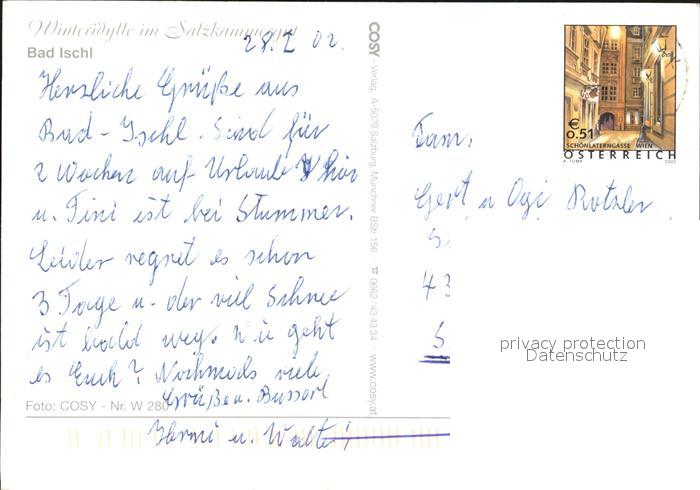 Winteridylle im Salzkammergut
Bad Ischl
28.I 02.
Herzliche Grüße aus
Bad-Ischl. Sind für
2 Wochen auf Urlaub hier
u. Tini ist bei Stummer.
Leider regnet es schon
3 Tage u. der viel Schnee
ist bald weg. Wie geht
es Euch? Nochmals viele
Grüße u. Bussorl
Hermi u. Walter
Foto: COSY - Nr. W 280
COSY - Verlag, A-5020 Salzburg, Münchner BStr. 156 ☎ 0662/43 43 34 · www.cosy.at
€
0.51
SCHÖNLATERNGASSE WIEN
ÖSTERREICH
A. TUMA 2002
Fam.
Gert u Ogi Rotzler
S.
43
S.
privacy protection
Datenschutz